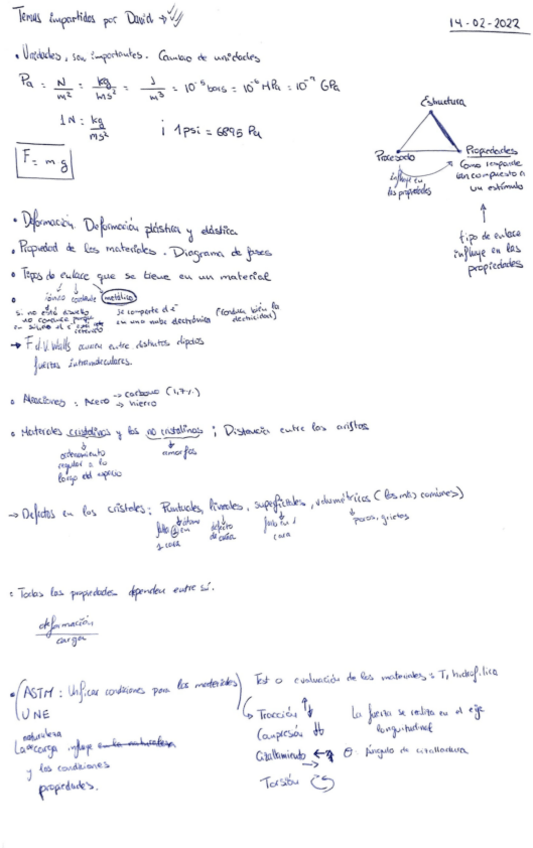 Temas impartidos por David →
14-02-2022
• Unidades, son importantes. Cambio de unidades
Pa = N/m² = kg/ms² = J/m³ = 10⁻⁵ bars = 10⁻⁶ MPa = 10⁻⁹ GPa
1N = kg/ms² ; 1psi = 6895 Pa
F = m g
Estructura
Procesado
Propiedades
influye en
las propiedades
Como responde
un compuesto a
un estímulo
tipo de enlace
influye en las
propiedades
• Deformación. Deformación plástica y elástica
• Propiedad de los materiales. Diagrama de fases
• Tipos de enlace que se tiene en un material
• iónico covalente metálico
si no está
no conduce porque
se comparte el e⁻
en una nube electrónica
(conduce bien la
electricidad)
→ F d.V. Walls ocurren entre distintos dipolos
fuerzas intramoleculares.
• Aleaciones: Acero → carbono (1,7%)
→ hierro
• Materiales cristalinos y los no cristalinos ; Distancia entre las aristas
ordenamiento
regular a lo
largo del espacio
amorfos
→ Defectos en los cristales: Puntuales, lineales, superficiales, volumétricos (los más comunes)
falta
defecto
cara
poros, grietas
• Todas las propiedades dependen entre sí.
deformación
carga
• ASTM: Unificar condiciones para los materiales
UNE
Test o evaluación de los materiales: T, hidrofílica
Tracción ↑↓
Compresión ↓↑
Cizallamiento
Torsión
La fuerza se realiza en el eje
longitudinal
θ: Ángulo de cizalladura
naturaleza
La carga influye en la naturaleza
y las condiciones
propiedades.